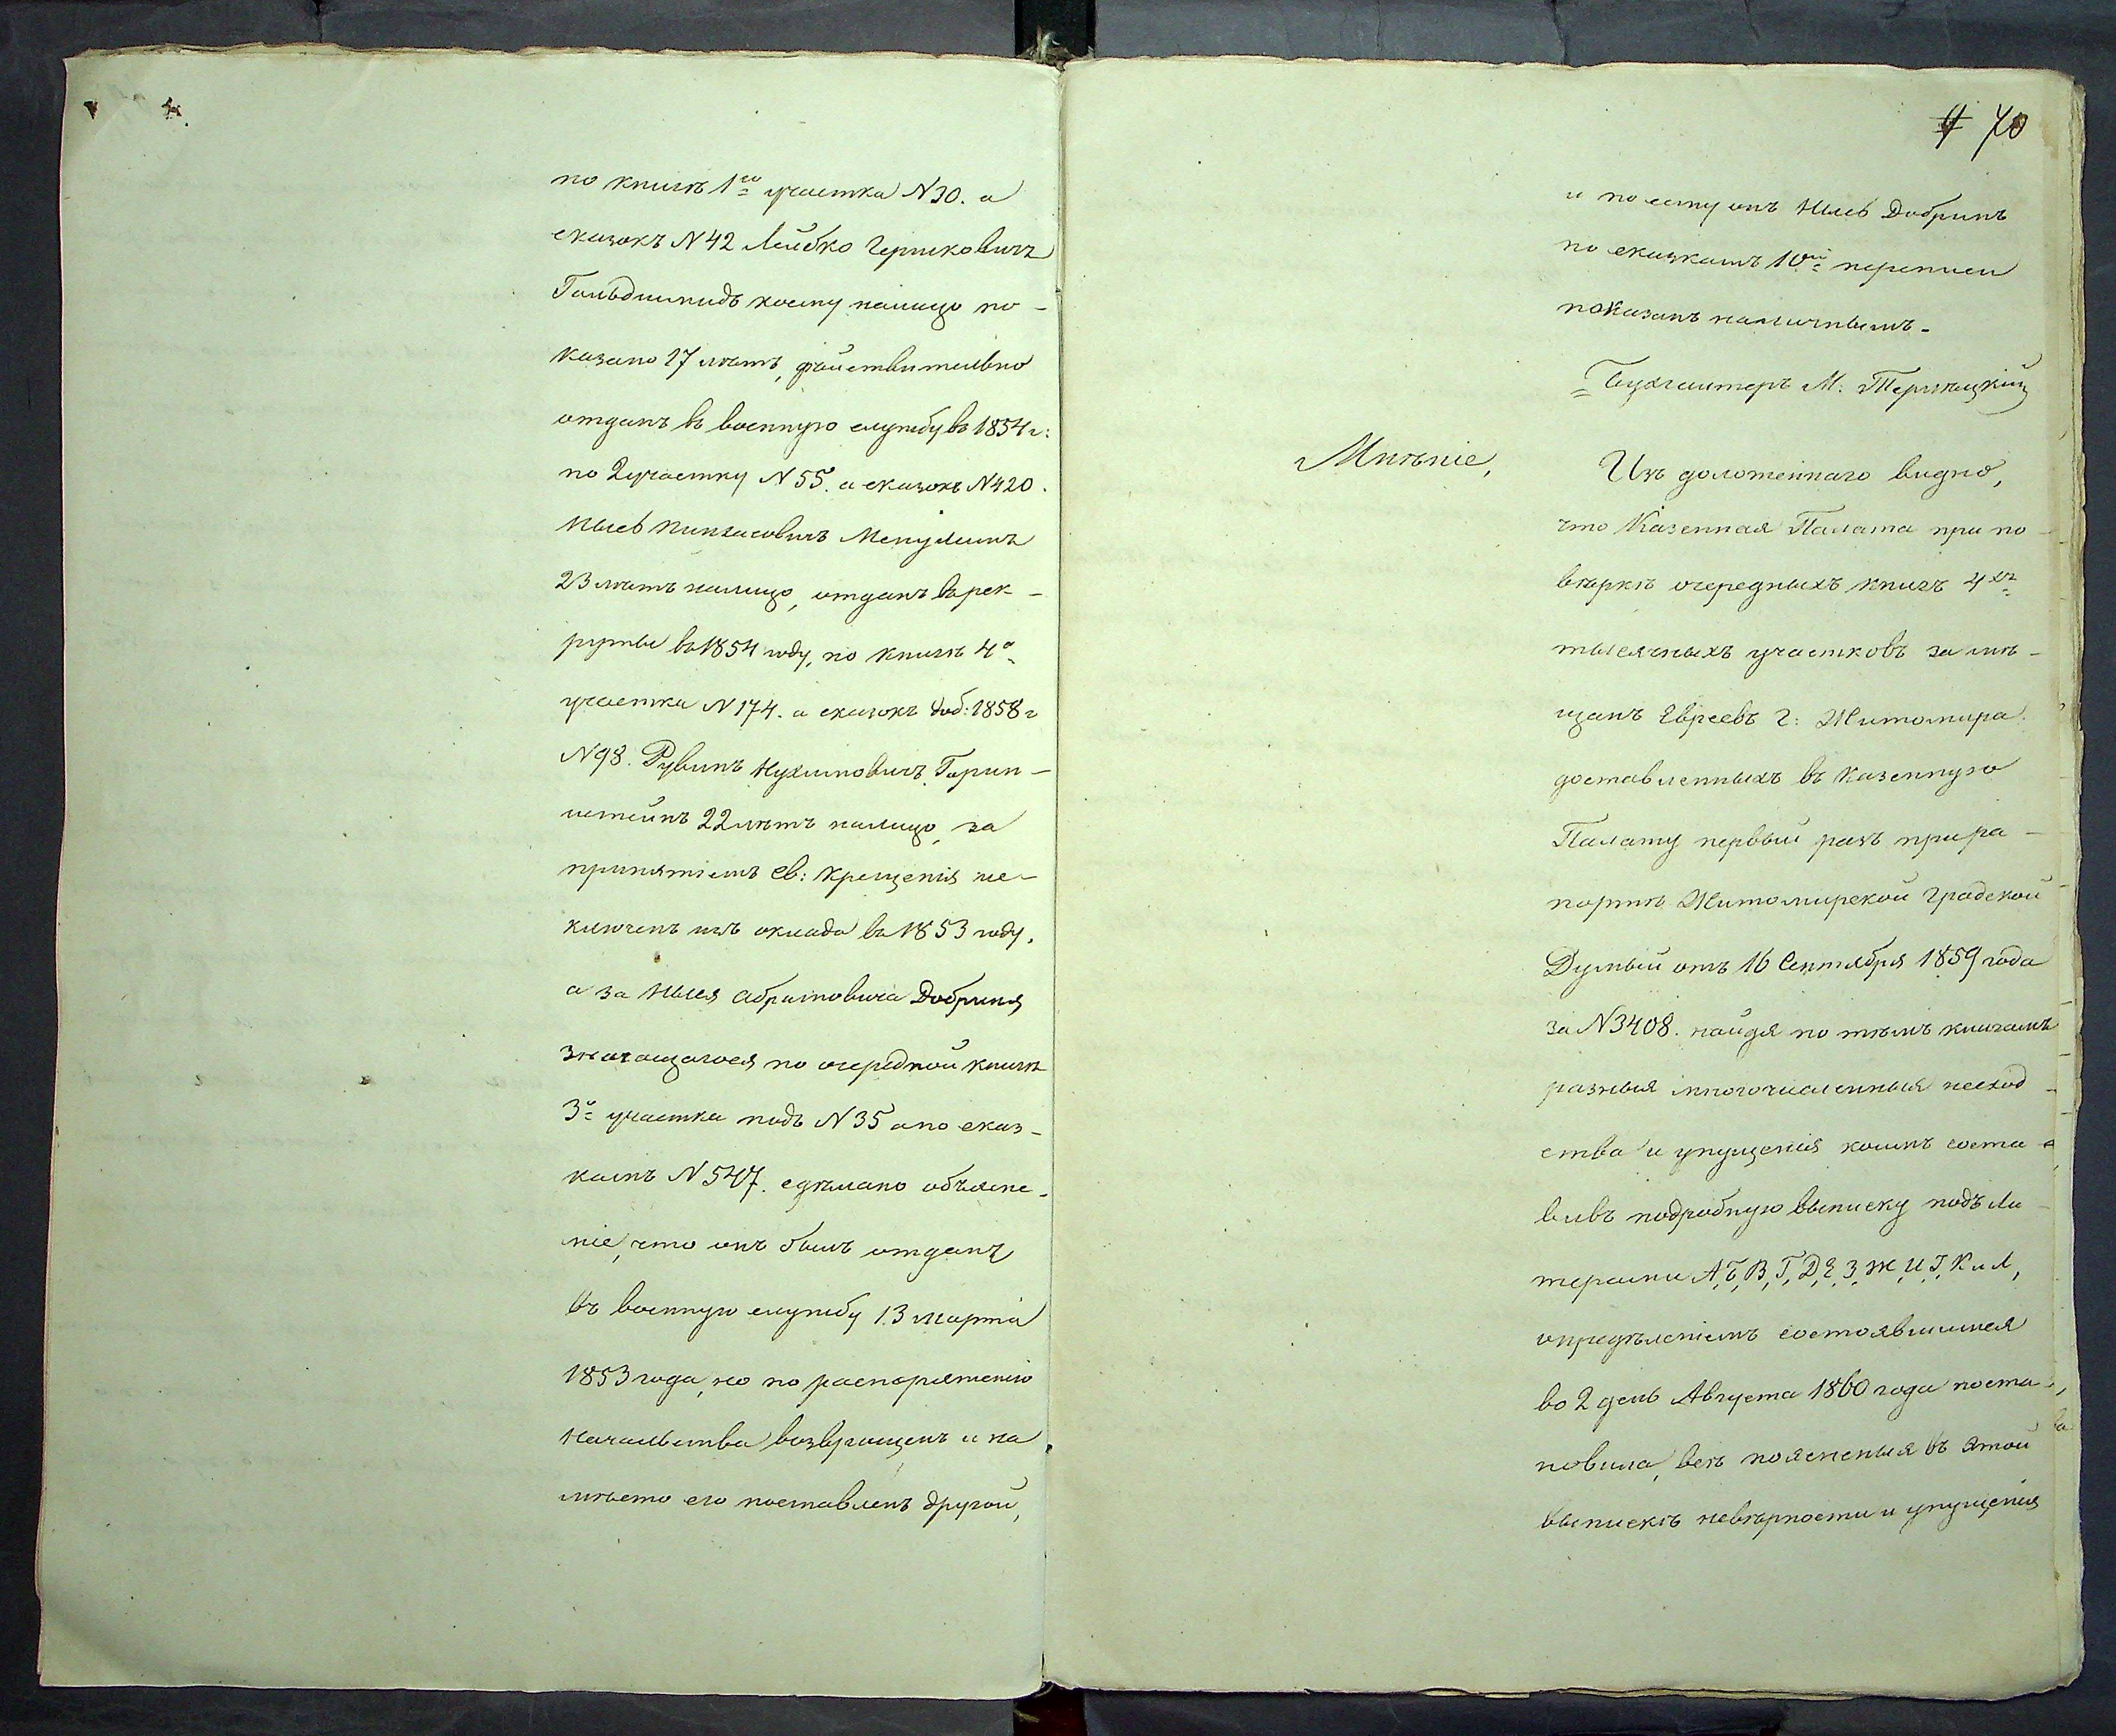 по книгѣ 1го участка N 30. а
сказокъ N 42 Лейбко Гершковичъ
Гольдшмидъ коему налицо по-
казано 17 лѣтъ, дѣйствительно
отданъ въ военную службу въ 1854 г:
по 2 участку N 55. а сказокъ N 420.
Иысь Пинхасовичъ
23 лѣтъ налицо, отданъ въ рек-
руты въ 1854 году, по книгѣ 4о
участка N 174. а сказокъ доб: 1858 г
N 98. Рувинъ Нухимовичъ Горин-
штейнъ 22 лѣтъ налицо, за
принятіемъ Св: Крещенія ис-
ключенъ изъ оклада въ 1853 году,
а за Абрамовича Добрина
значащагося по очередной книгѣ
3о участка подъ N 35 а по сказ-
камъ N 547. сдѣлано объясне-
ніе, что онъ былъ отданъ
въ военную службу 13 марта
1853 года, но по распоряженію
Начальства возвращенъ и на
мѣсто его поставленъ другой,
4 70
и по сему онъ Добринъ
по сказкамъ 10ой переписи
показанъ наличнымъ.
Бухгалтеръ М.
Мнѣніе,
Изъ доложеннаго видно,
что Казенная Палата при по-
вѣркѣ очередныхъ книгъ 4хъ
тысячныхъ участковъ за мѣ-
щанъ Евреевъ г: Житомира
доставленныхъ въ Казенную
Палату первый разъ при ра-
портѣ Житомирской Градской
Думы отъ 16 Сентября 1859 года
за N 3408. найдя по тѣмъ книгамъ
разныя многочисленныя несход-
ства и упущенія коимъ соста-
вивъ подробную выписку подъ Ли-
терами А, Б, В, Г, Д, Е, З, Ж, И, І, К и Л,
опредѣленіемъ состоявшимся
во 2 день Августа 1860 года поста-
новила, всѣ поясненыя въ этой
выпискѣ невѣрности и упущенія